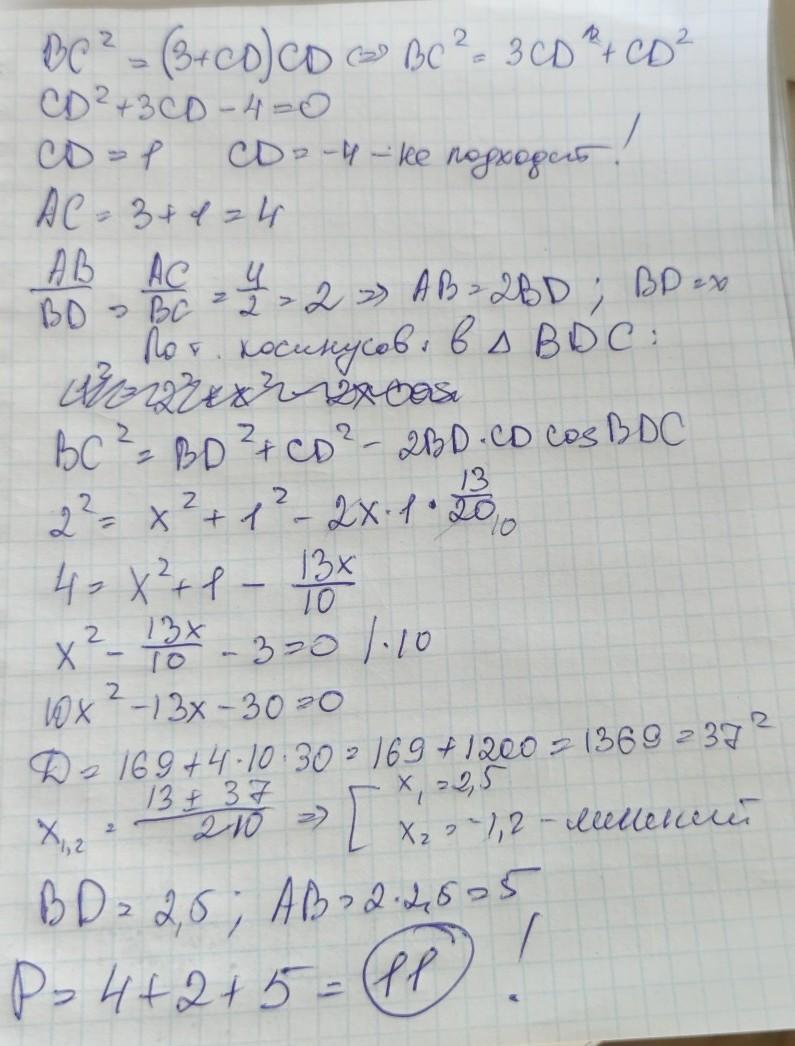 BC² = (3+CD)CD ⇔ BC² = 3CD + CD²
CD² + 3CD - 4 = 0
CD = 1 CD = -4 - не подходит!
AC = 3 + 1 = 4
AB/BD = AC/BC = 4/2 = 2 ⇒ AB = 2BD ; BD = x
По т. косинусов в △ BDC :
BC² = BD² + CD² - 2BD·CD cosBDC
2² = x² + 1² - 2x·1·13/20 10
4 = x² + 1 - 13x/10
x² - 13x/10 - 3 = 0 /·10
10x² - 13x - 30 = 0
D = 169 + 4·10·30 = 169 + 1200 = 1369 = 37²
x₁,₂ = 13 ± 37/2·10 ⇒ [ x₁ = 2,5
x₂ = -1,2 - лишний
BD = 2,5 ; AB = 2·2,5 = 5
P = 4 + 2 + 5 = 11 !